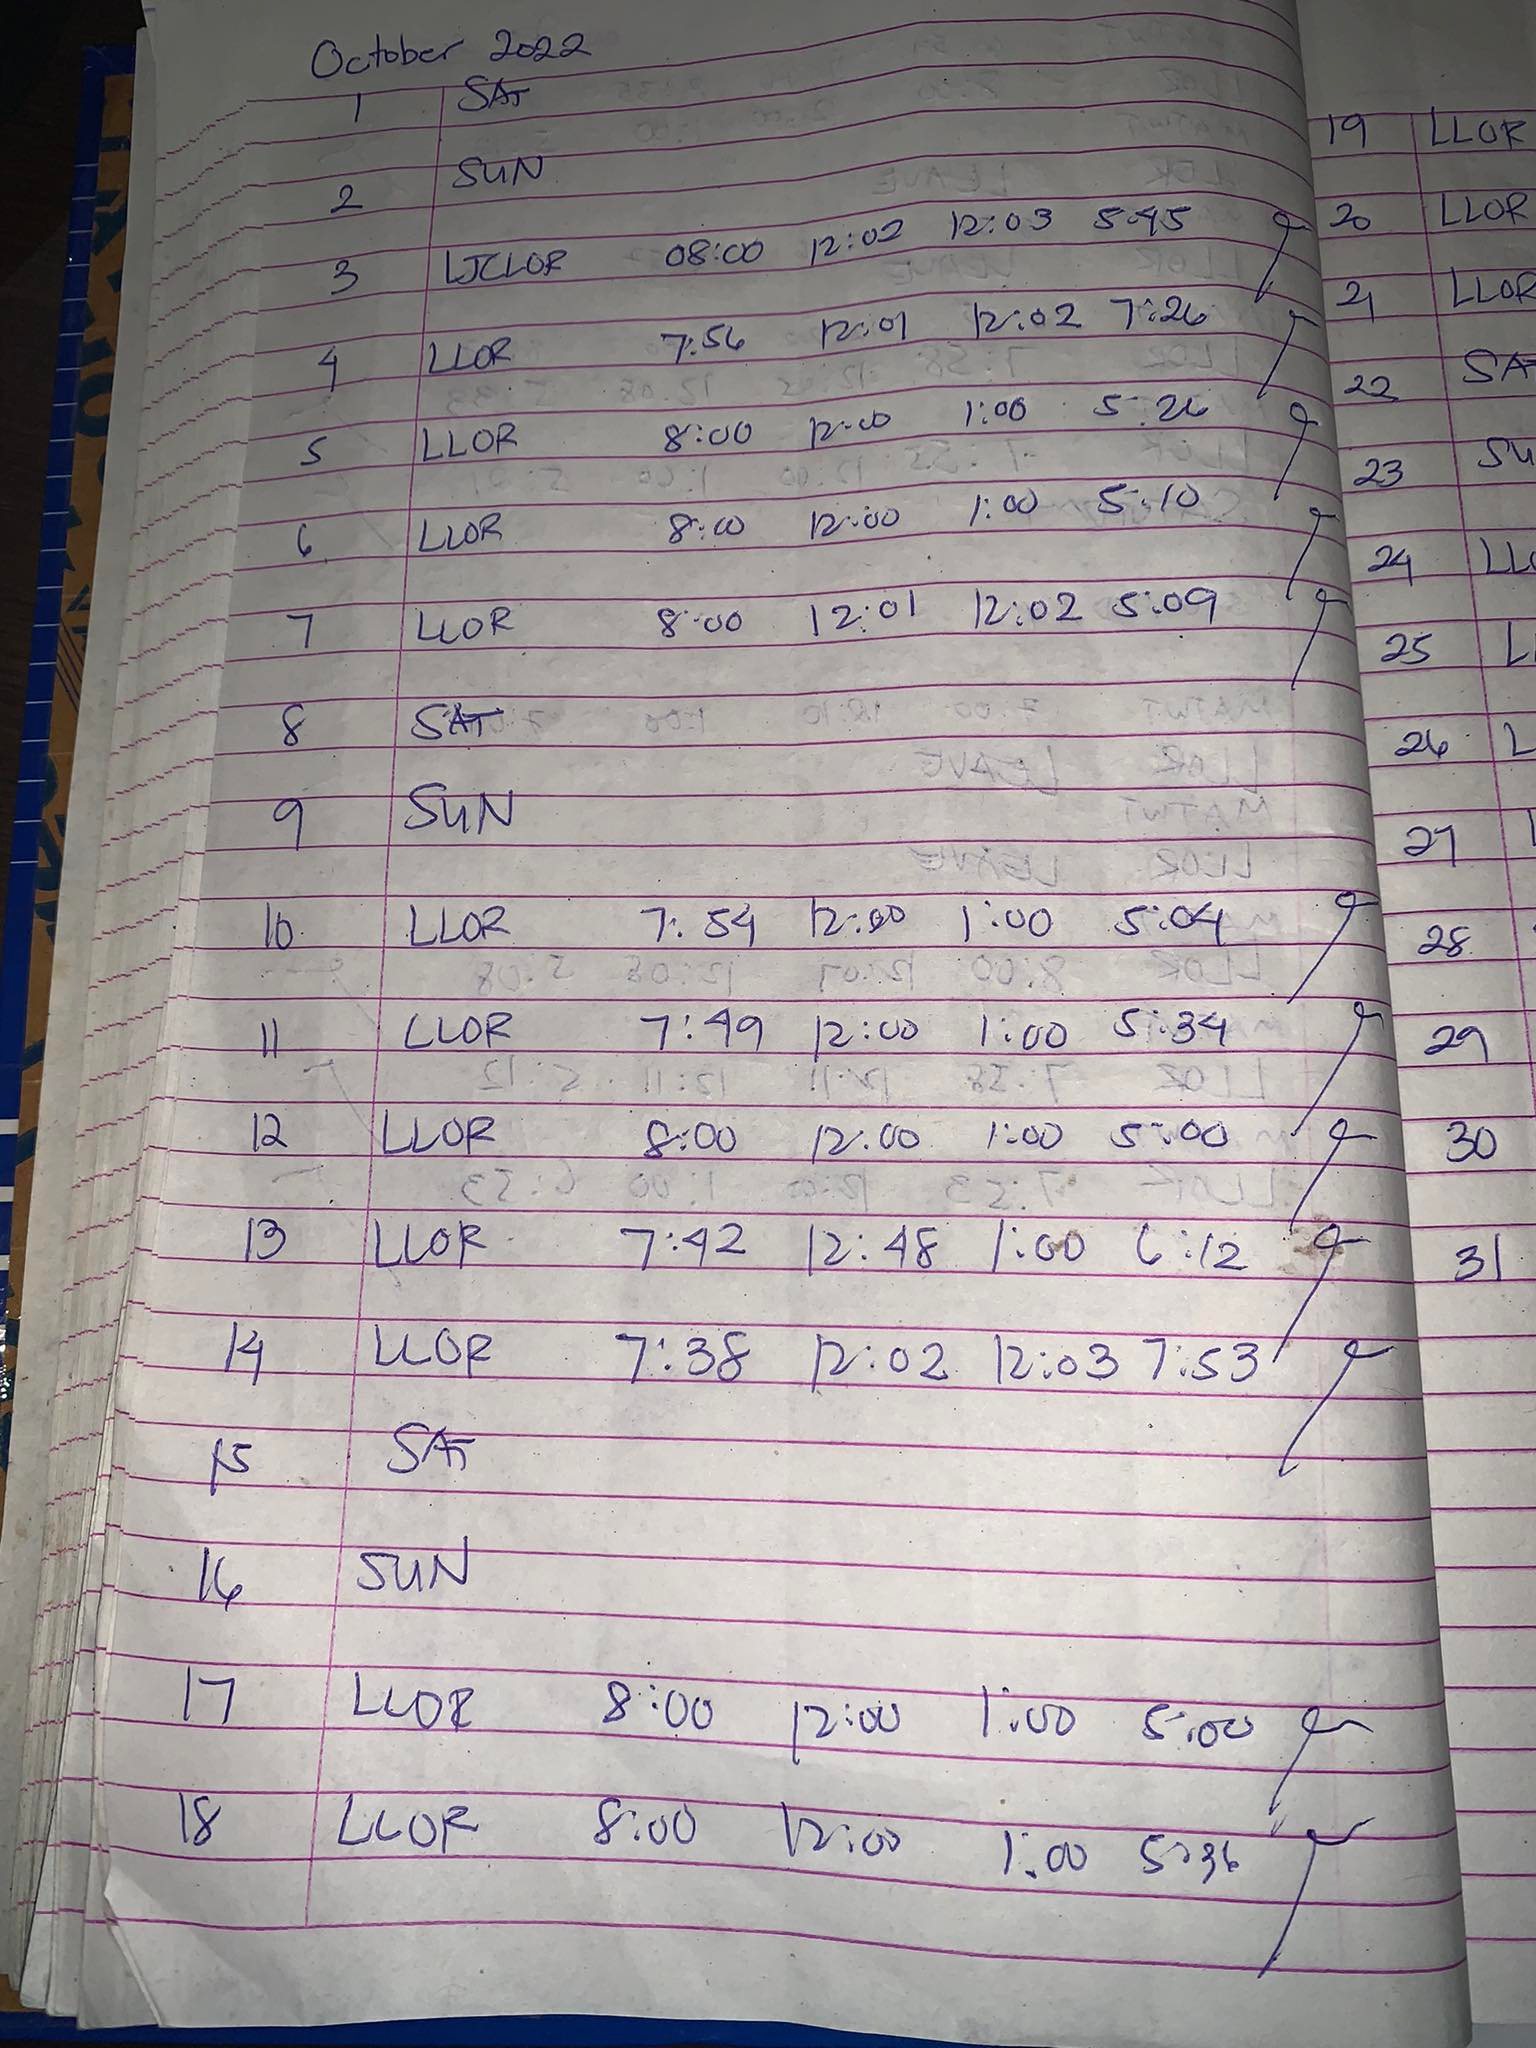 October 2022
1 SAT
2 SUN
3 LJCLOR 08:00 12:02 12:03 5:45
4 LLOR 7:56 12:01 12:02 7:26
5 LLOR 8:00 12:00 1:00 5:26
6 LLOR 8:00 12:00 1:00 5:10
7 LLOR 8:00 12:01 12:02 5:09
8 SAT
9 SUN
10 LLOR 7:54 12:00 1:00 5:04
11 LLOR 7:49 12:00 1:00 5:34
12 LLOR 8:00 12:00 1:00 5:00
13 LLOR 7:42 12:48 1:00 6:12
14 LLOR 7:38 12:02 12:03 7:53
15 SAT
16 SUN
17 LLOR 8:00 12:00 1:00 5:00
18 LLOR 8:00 12:00 1:00 5:36
19 LLOR
20 LLOR
21 LLOR
22 SA
23 SU
24 LL
25 L
26 L
27
28
29
30
31